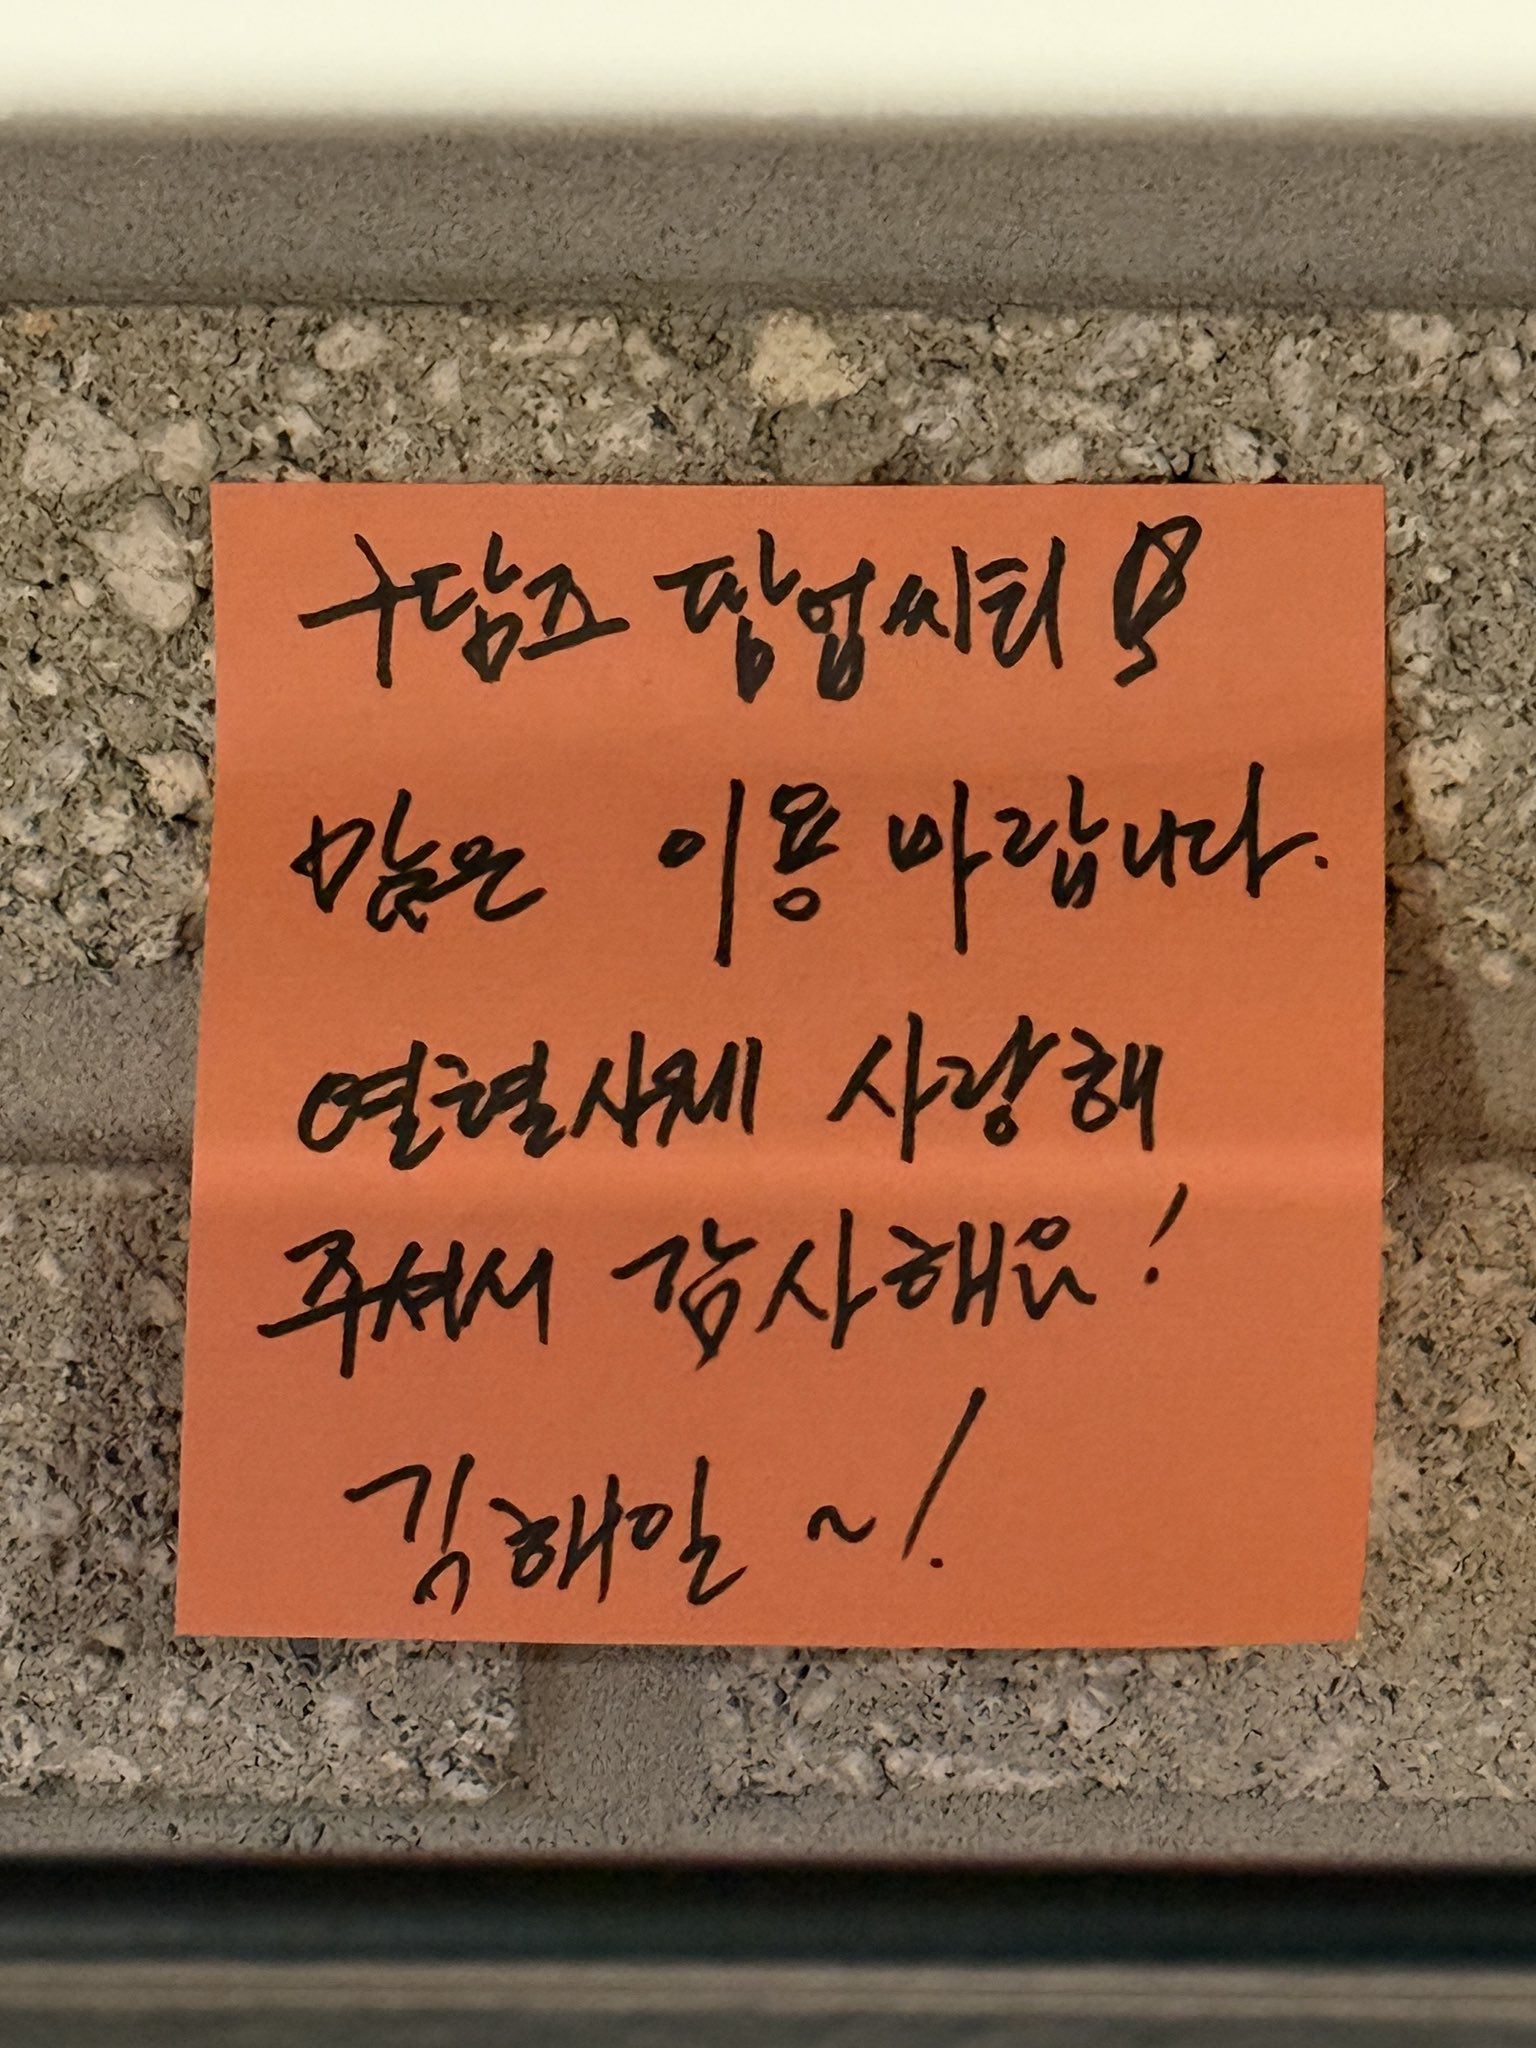 구담즈 팝업씨티
많은 이용 바랍니다.
열혈사제 사랑해
주셔서 감사해요!
김해일 ~!